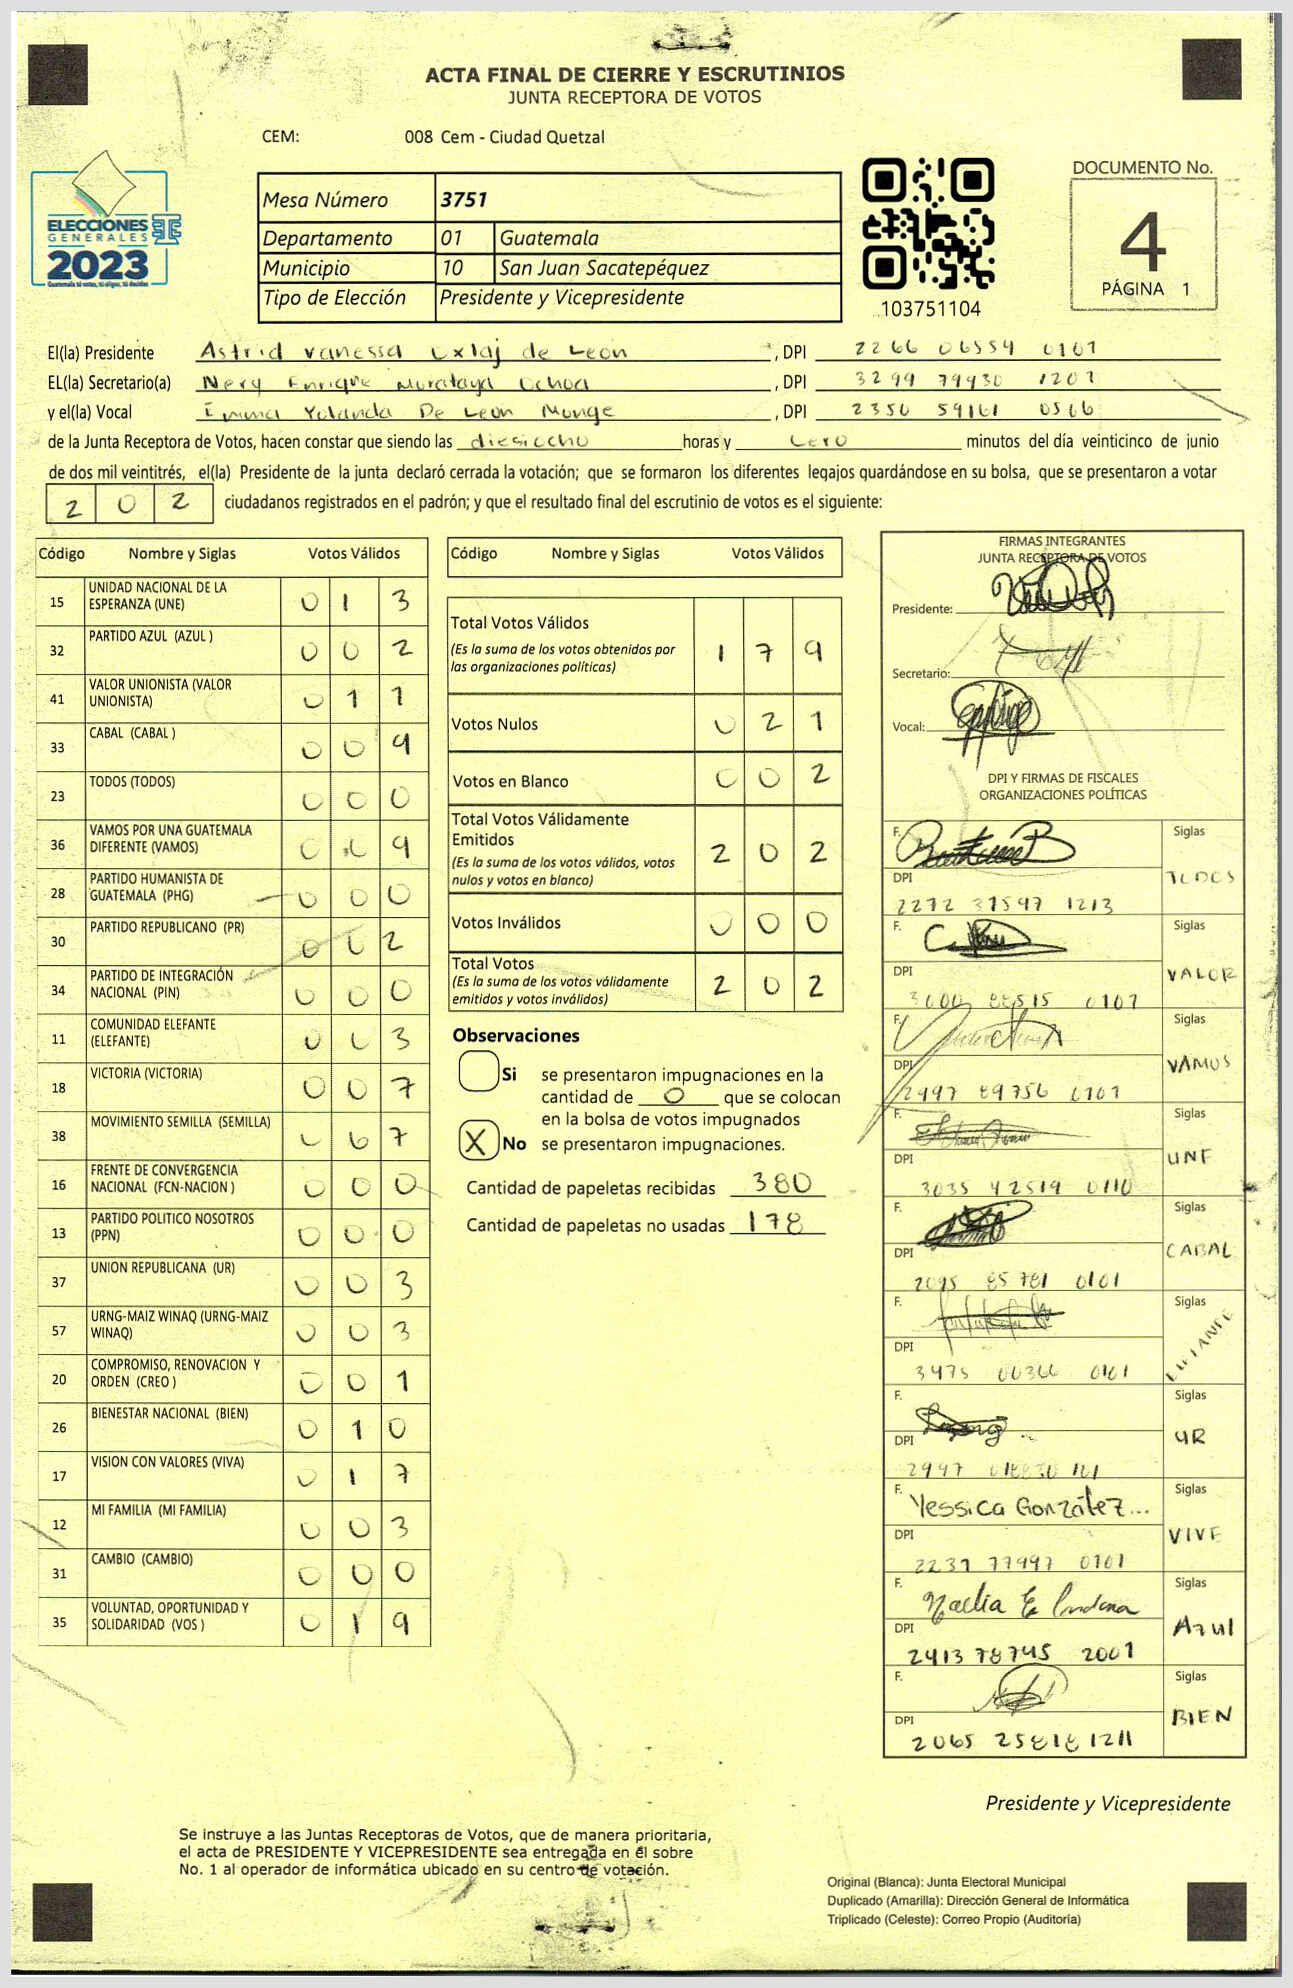 ACTA FINAL DE CIERRE Y ESCRUTINIOS
JUNTA RECEPTORA DE VOTOS
CEM: 008 Cem - Ciudad Quetzal
ELECCIONES
GENERALES
2023
Guatemala tú votas, tú eliges, tú decides
Mesa Número 3751
Departamento 01 Guatemala
Municipio 10 San Juan Sacatepéquez
Tipo de Elección Presidente y Vicepresidente
103751104
DOCUMENTO No.
4
PÁGINA 1
El(la) Presidente Astrid Vanessa Uxlaj de León , DPI 2266 06554 0101
EL(la) Secretario(a) Nery Enrique Morataya Ochoa , DPI 3299 79930 1201
y el(la) Vocal Emma Yolanda De León Monge , DPI 2350 59161 0506
de la Junta Receptora de Votos, hacen constar que siendo las diesiocho horas y cero minutos del día veinticinco de junio
de dos mil veintitrés, el(la) Presidente de la junta declaró cerrada la votación; que se formaron los diferentes legajos quardándose en su bolsa, que se presentaron a votar
2 0 2 ciudadanos registrados en el padrón; y que el resultado final del escrutinio de votos es el siguiente:
Código Nombre y Siglas Votos Válidos
15 UNIDAD NACIONAL DE LA ESPERANZA (UNE) 0 1 3
32 PARTIDO AZUL (AZUL ) 0 0 2
41 VALOR UNIONISTA (VALOR UNIONISTA) 0 1 1
33 CABAL (CABAL ) 0 0 9
23 TODOS (TODOS) 0 0 0
36 VAMOS POR UNA GUATEMALA DIFERENTE (VAMOS) 0 0 9
28 PARTIDO HUMANISTA DE GUATEMALA (PHG) 0 0 0
30 PARTIDO REPUBLICANO (PR) 0 0 2
34 PARTIDO DE INTEGRACIÓN NACIONAL (PIN) 0 0 0
11 COMUNIDAD ELEFANTE (ELEFANTE) 0 0 3
18 VICTORIA (VICTORIA) 0 0 7
38 MOVIMIENTO SEMILLA (SEMILLA) 0 6 7
16 FRENTE DE CONVERGENCIA NACIONAL (FCN-NACION ) 0 0 0
13 PARTIDO POLITICO NOSOTROS (PPN) 0 0 0
37 UNION REPUBLICANA (UR) 0 0 3
57 URNG-MAIZ WINAQ (URNG-MAIZ WINAQ) 0 0 3
20 COMPROMISO, RENOVACION Y ORDEN (CREO ) 0 0 1
26 BIENESTAR NACIONAL (BIEN) 0 1 0
17 VISION CON VALORES (VIVA) 0 1 7
12 MI FAMILIA (MI FAMILIA) 0 0 3
31 CAMBIO (CAMBIO) 0 0 0
35 VOLUNTAD, OPORTUNIDAD Y SOLIDARIDAD (VOS ) 0 1 9
Código Nombre y Siglas Votos Válidos
Total Votos Válidos 1 7 9
(Es la suma de los votos obtenidos por
las organizaciones políticas)
Votos Nulos 0 2 1
Votos en Blanco 0 0 2
Total Votos Válidamente
Emitidos 2 0 2
(Es la suma de los votos válidos, votos
nulos y votos en blanco)
Votos Inválidos 0 0 0
Total Votos 2 0 2
(Es la suma de los votos válidamente
emitidos y votos inválidos)
Observaciones
Si se presentaron impugnaciones en la
cantidad de 0 que se colocan
en la bolsa de votos impugnados
X No se presentaron impugnaciones.
Cantidad de papeletas recibidas 380
Cantidad de papeletas no usadas 178
FIRMAS INTEGRANTES
JUNTA RECEPTORA DE VOTOS
Presidente:
Secretario:
Vocal:
DPI Y FIRMAS DE FISCALES
ORGANIZACIONES POLÍTICAS
F. Siglas
DPI TODOS
2272 31597 1213
F. Siglas
DPI VALOR
3000 88515 0107
F. Siglas
DPI VAMOS
2997 89756 0101
F. Siglas
DPI UNE
3035 42519 0110
F. Siglas
DPI CABAL
2095 85781 0101
F. Siglas
DPI ELEFANTE
3475 00366 0101
F. Siglas
DPI UR
2997 101
F. Yessica González... Siglas
DPI VIVE
2231 77997 0101
F. Siglas
DPI Azul
2413 78745 2001
F. Siglas
DPI BIEN
2065 25818 1211
Presidente y Vicepresidente
Se instruye a las Juntas Receptoras de Votos, que de manera prioritaria,
el acta de PRESIDENTE Y VICEPRESIDENTE sea entregada en él sobre
No. 1 al operador de informática ubicado en su centro de votación.
Original (Blanca): Junta Electoral Municipal
Duplicado (Amarilla): Dirección General de Informática
Triplicado (Celeste): Correo Propio (Auditoría)